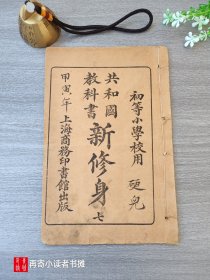 初等小學校用
共和國
教科書
新修身
七
甲寅年上海商務印書館出版
再奇小读者书摊